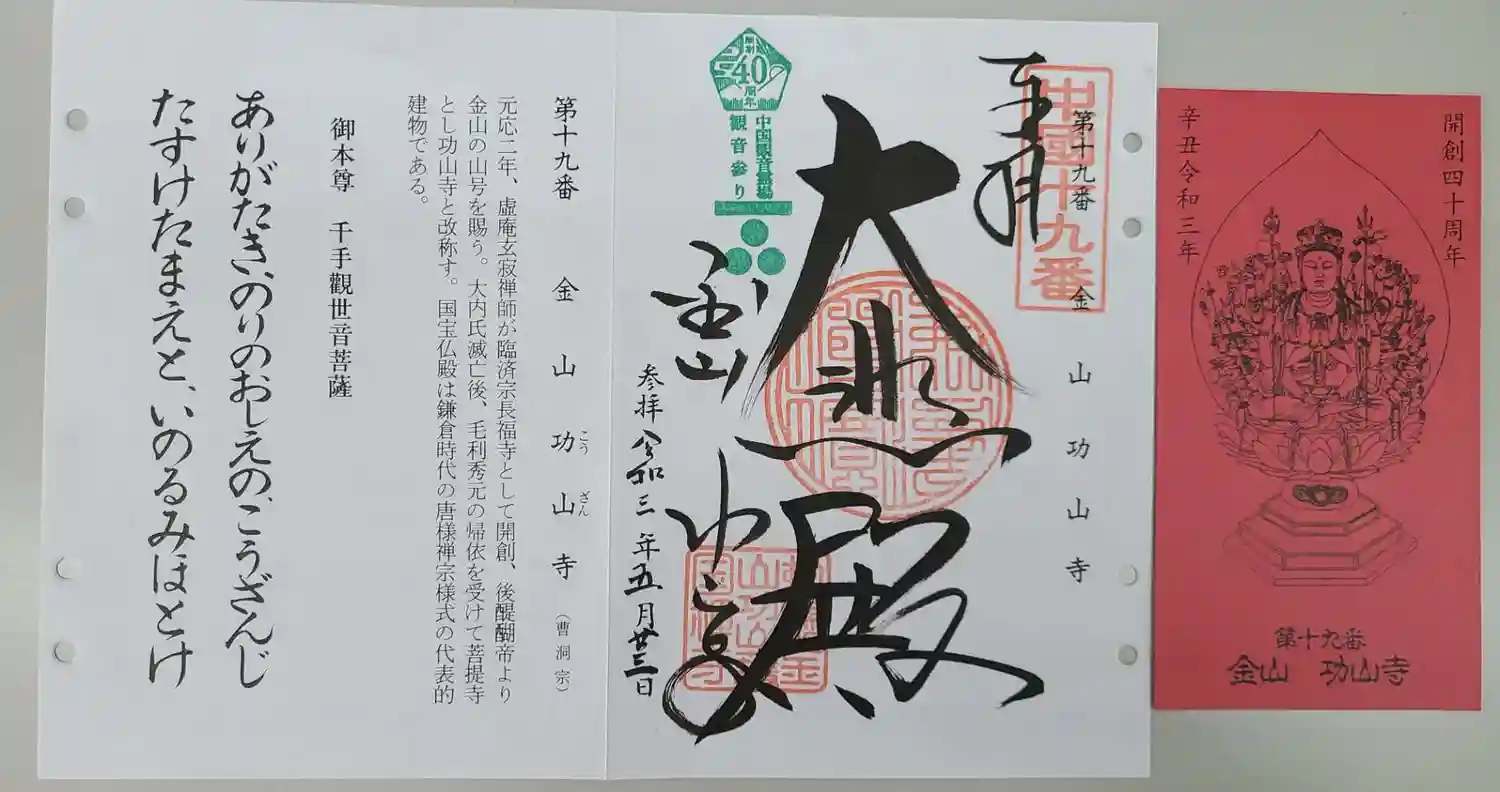 開創四十周年
辛丑令和三年
第十九番
金山 功山寺
奉拝
中國十九番
第十九番 金山功山寺
大悲殿
金山
功山寺
参拝 令和三年五月廿三日
開
40
周年
中国観音霊場
観音参り
第十九番 金山功山寺(曹洞宗)
こう ざん
元応二年、虚庵玄寂禅師が臨済宗長福寺として開創、後醍醐帝より
金山の山号を賜う。大内氏滅亡後、毛利秀元の帰依を受けて菩提寺
とし功山寺と改称す。国宝仏殿は鎌倉時代の唐様禅宗様式の代表的
建物である。
御本尊 千手觀世音菩薩
ありがたき、のりのおしえの、こうざんじ
たすけたまえと、いのるみほとけ